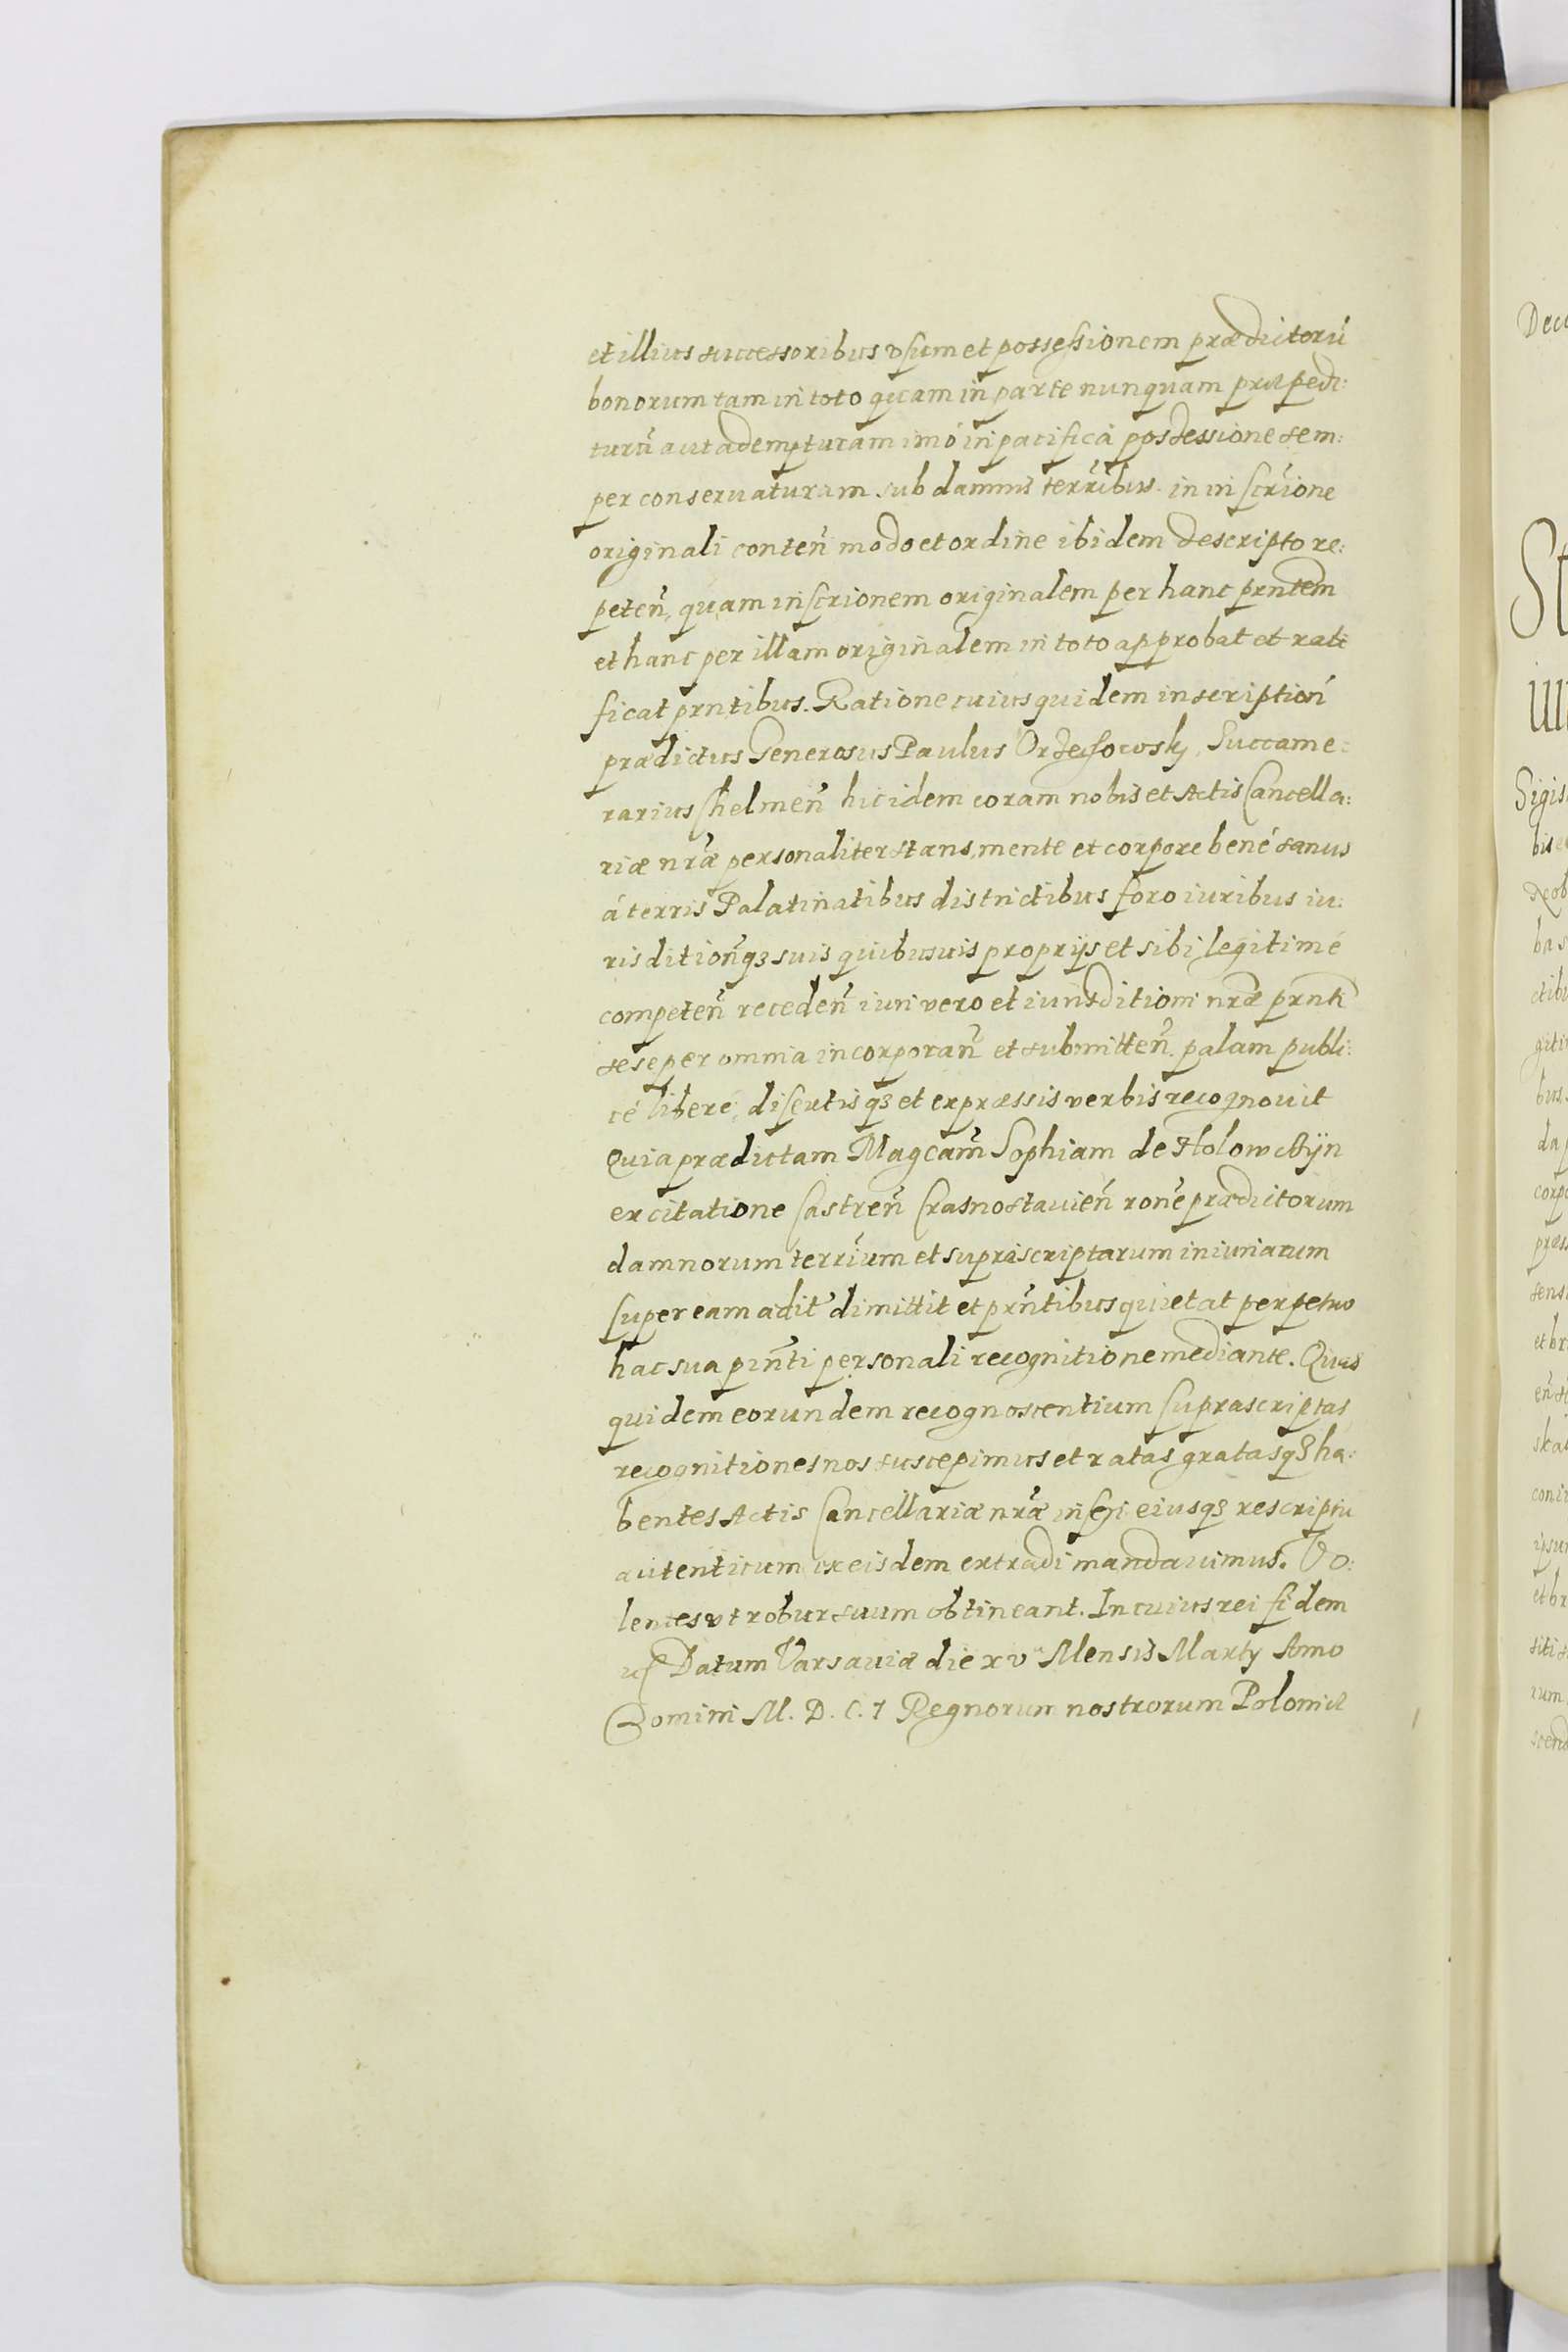 et illius successoribus vsum et possessionem prædictorū
bonorum tam in toto quam in parte nunquam præpedi:
turū aut adempturam imó in pacificá possessione sem:
per conseruaturam sub damnis terrribus in inscrione
originali conten̄ modo et ordine ibidem descripto re:
peten̄, quam inscrionem originalem per hanc prntem
et hanc per illam originalem in toto approbat et rati
ficat prntibus. Ratione cuius quidem inscription̄
prædictus Generosus Paulus Orzechowsky Succame:
rarius Chelmen̄ hic idem coram nobis et Actis Cancella:
riæ nræ personaliter stans, mente et corpore bené sanus
á terris Palatinatibus districtibus foro iuribus iu:
risdition̄qȝ suis quibusuis proprijs et sibi legitimé
competen̄ receden̄ iuri vero et iurisditioni nræ prnti
sese per omnia incorporan̄ et submitten̄ palam publi:
cé liberé, disertisqȝ et expræssis verbis recognouit
Quia prædictam Magcam̄ Sophiam de Holowczyn
ex citatione Castren̄ Crasnostauien̄ rone prædictorum
damnorum terrium et suprascriptarum iniuriarum
super eam adit dimittit et prntibus quietat perpetuo
hac sua prnti personali recognitione mediante. Quas
quidem eorundem recognoscentium suprascriptas
recognitiones nos suscepimus et ratas gratasqȝ ha:
bentes Actis Cancellariæ nræ inseri eiusqȝ rescriptū
autenticum ex eisdem extradi mandauimus. Vo:
lentes vt robur suum obtineant. In cuius rei fidem
Datum Varsauiæ die xv Mensis Martij Anno
Domini M. D. C. I Regnorum nostrorum Poloniæ
Sigis